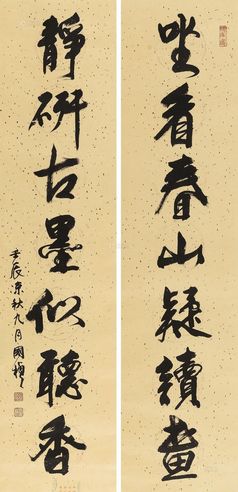 坐看春山疑續畫
靜研古墨似聽香
壬辰涼秋九月國楨